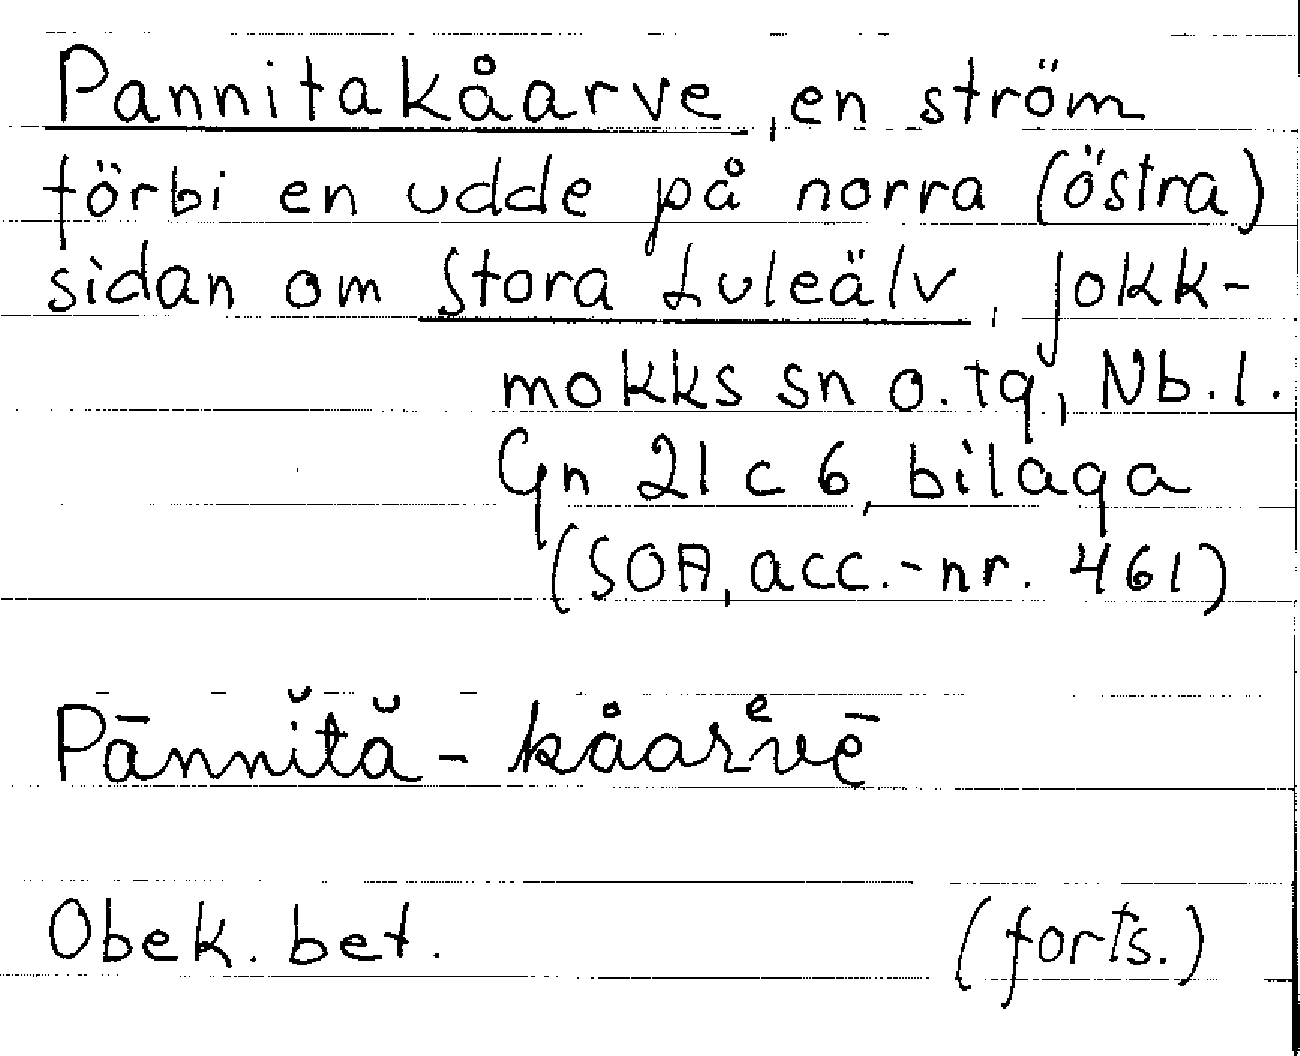 Pannitakåarve, en ström
förbi en udde på norra (östra)
sidan om Stora Luleälv, Jokk-
mokks sn o. tg, Nb. l.
Gn 21 c 6, bilaga
(SOA, acc.-nr. 461)
Pānnĭtă - kåarᵉvē
Obek. bet. (forts.)